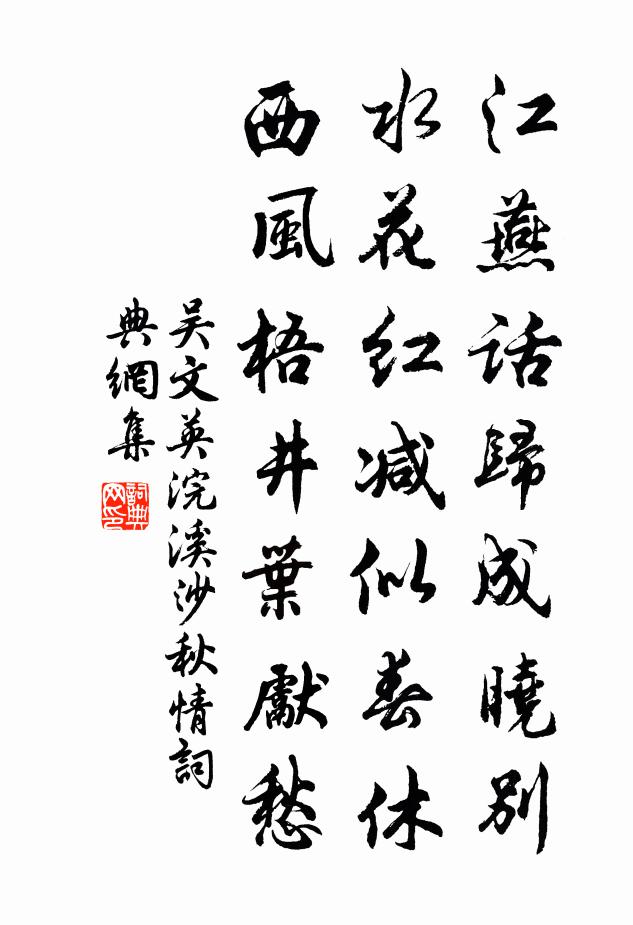 江燕話歸成曉別
水花红減似春休
西風梧井葉獻愁
吴文英浣溪沙秋情詞
典網集
詞典
网印